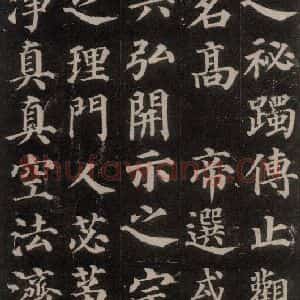 之祕躅傳止觀
名高帝選
弘開示之宗
之理門人苾蒭
淨真真空法濟
shufawang.cn